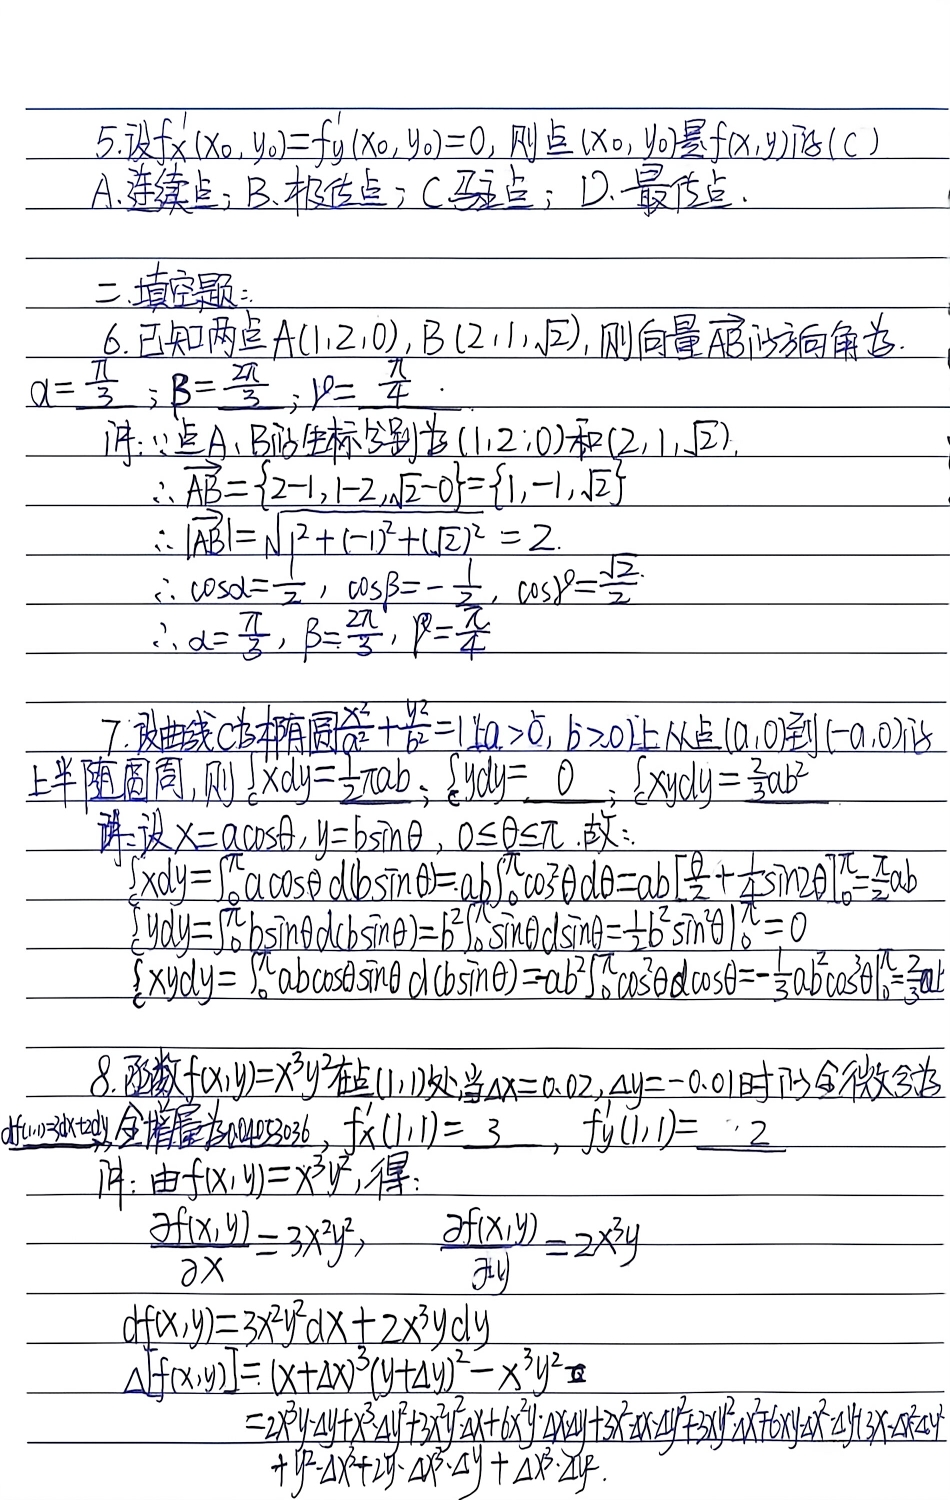 5.设f'x(x₀,y₀)=f'y(x₀,y₀)=0,则点(x₀,y₀)是f(x,y)的(C)
A.连续点;B.极值点;C.驻点;D.最值点.
二.填空题:
6.已知两点A(1,2,0),B(2,1,√2),则向量AB的方向角为.
α=π/3;β=2π/3;γ=π/4.
详:∵点A、B的坐标分别为(1,2,0)和(2,1,√2).
∴AB={2-1,1-2,√2-0}={1,-1,√2}
∴|AB|=√(1²+(-1)²+(√2)²)=2.
∴cosα=1/2,cosβ=-1/2,cosγ=√2/2.
∴α=π/3,β=2π/3,γ=π/4
7.设曲线C为椭圆x²/a²+y²/b²=1(a>0,b>0)上从点(a,0)到(-a,0)的
上半随圆周,则∫c xdy=1/2πab;∫c ydy=0;∫c xydy=2/3ab²
详:设x=acosθ,y=bsinθ,0≤θ≤π.故:
∫c xdy=∫₀^π acosθd(bsinθ)=ab∫₀^π cos²θdθ=ab[θ/2+1/4sin2θ]|₀^π=π/2ab
∫c ydy=∫₀^π bsinθd(bsinθ)=b²∫₀^π sinθdsinθ=1/2b²sin²θ|₀^π=0
∫c xydy=∫₀^π abcosθsinθd(bsinθ)=-ab²∫₀^π cos²θdcosθ=-1/3ab²cos³θ|₀^π=2/3ab
8.函数f(x,y)=x³y²在点(1,1)处,当Δx=0.02,Δy=-0.01时的全微分为
df(1,1)=3dx+2dy,全增量为,f'x(1,1)=3,f'y(1,1)=2
详:由f(x,y)=x³y²,得:
∂f(x,y)/∂x=3x²y², ∂f(x,y)/∂y=2x³y
df(x,y)=3x²y²dx+2x³ydy
Δ[f(x,y)]=(x+Δx)³(y+Δy)²-x³y²
=2x³y·Δy+x³·Δy²+3x²y²·Δx+6x²y·ΔxΔy+3x²·Δx·Δy²+3xy²·Δx²+6xy·Δx²·Δy+3x·Δx²Δy²
+y²·Δx³+2y·Δx³·Δy+Δx³·Δy².